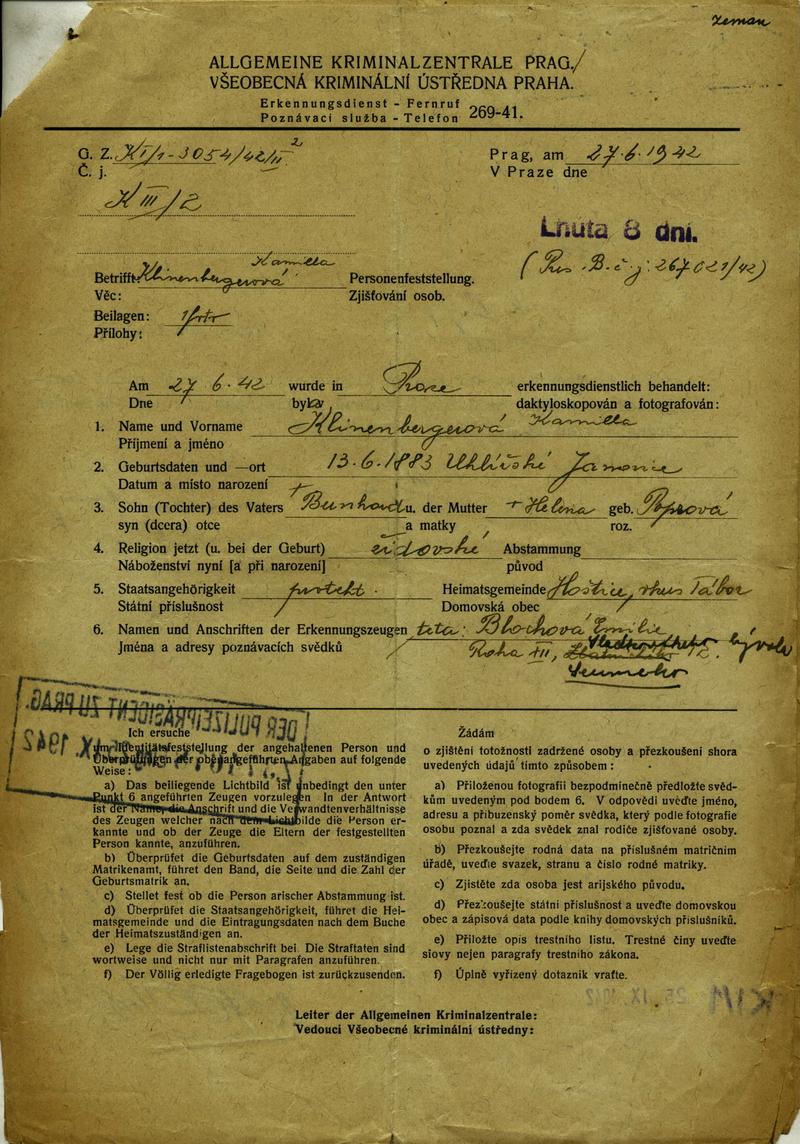 Zeman
ALLGEMEINE KRIMINALZENTRALE PRAG.
VŠEOBECNÁ KRIMINÁLNÍ ÚSTŘEDNA PRAHA.
Erkennungsdienst - Fernruf
Poznávací služba - Telefon 269-41.
G. Z. XI/1-3054/42/II
Č. j.
XIII/2
Prag, am 27.6.1942
V Praze dne
Lhůta 8 dní.
Kamila
Betrifft: Personenfeststellung.
Věc: Zjišťování osob.
Beilagen:
Přílohy:
Am 27 6. 42 wurde in erkennungsdienstlich behandelt:
Dne byl daktyloskopován a fotografován:
1. Name und Vorname Klinenbergerová Kamila
Příjmení a jméno
2. Geburtsdaten und —ort 13.6.1883
Datum a místo narození
3. Sohn (Tochter) des Vaters u. der Mutter geb.
syn (dcera) otce a matky roz.
4. Religion jetzt (u. bei der Geburt) židovské Abstammung
Náboženství nyní [a při narození] původ
5. Staatsangehörigkeit protekt. Heimatsgemeinde Tábor
Státní příslušnost Domovská obec
6. Namen und Anschriften der Erkennungszeugen teta: Blochová Emilie
Jména a adresy poznávacích svědků
DER POLIZEIPRÄSIDENT ZU PRAG
1942
Ich ersuche
um Identitätsfeststellung der angehaltenen Person und
Überprüfungen der oben angeführten Angaben auf folgende
Weise:
a) Das beiliegende Lichtbild ist unbedingt den unter
Punkt 6 angeführten Zeugen vorzulegen In der Antwort
ist der Name, die Anschrift und die Verwandtenverhältnisse
des Zeugen welcher nach dem Lichtbilde die Person er-
kannte und ob der Zeuge die Eltern der festgestellten
Person kannte, anzuführen.
b) Überprüfet die Geburtsdaten auf dem zuständigen
Matrikenamt, führet den Band, die Seite und die Zahl der
Geburtsmatrik an.
c) Stellet fest ob die Person arischer Abstammung ist.
d) Überprüfet die Staatsangehörigkeit, führet die Hei-
matsgemeinde und die Eintragungsdaten nach dem Buche
der Heimatszuständigen an.
e) Lege die Straflistenabschrift bei. Die Straftaten sind
wortweise und nicht nur mit Paragrafen anzuführen.
f) Der Völlig erledigte Fragebogen ist zurückzusenden.
Žádám
o zjištění totožnosti zadržené osoby a přezkoušení shora
uvedených údajů tímto způsobem:
a) Přiloženou fotografii bezpodmínečně předložte svěd-
kům uvedeným pod bodem 6. V odpovědi uveďte jméno,
adresu a příbuzenský poměr svědka, který podle fotografie
osobu poznal a zda svědek znal rodiče zjišťované osoby.
b) Přezkoušejte rodná data na příslušném matričním
úřadě, uveďte svazek, stranu a číslo rodné matriky.
c) Zjistěte zda osoba jest arijského původu.
d) Přezkoušejte státní příslušnost a uveďte domovskou
obec a zápisová data podle knihy domovských příslušníků.
e) Přiložte opis trestního listu. Trestné činy uveďte
slovy nejen paragrafy trestního zákona.
f) Úplně vyřízený dotazník vraťte.
Leiter der Allgemeinen Kriminalzentrale:
Vedoucí Všeobecné kriminální ústředny: